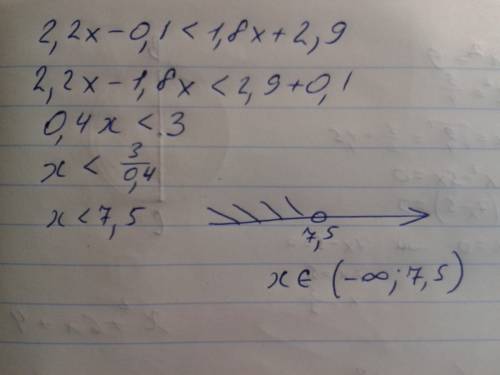 2,2x-0,1<1,8x+2,9
2,2x-1,8x<2,9+0,1
0,4x<3
x < 3/0,4
x<7,5
7,5
x∈(-∞;7,5)